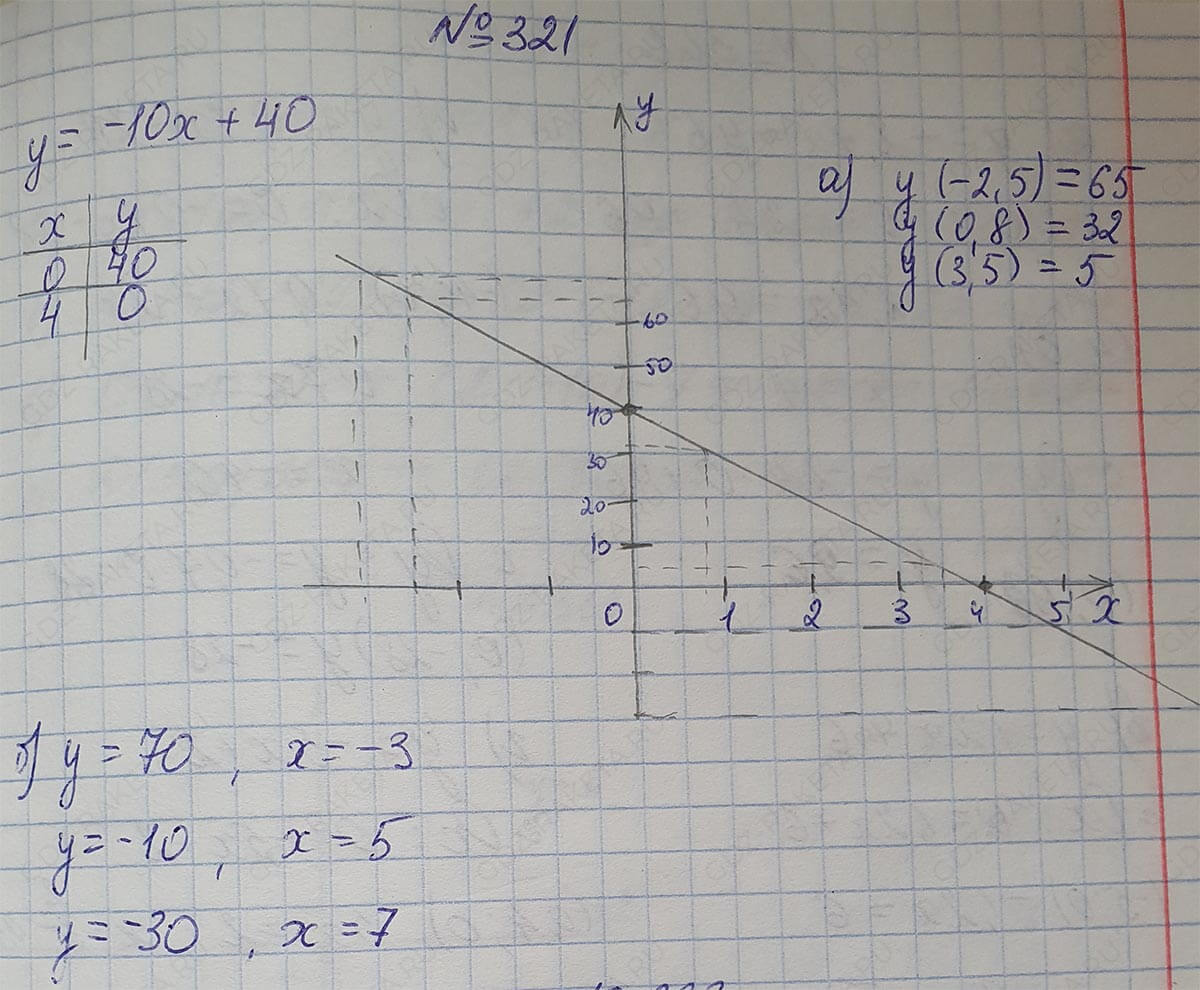 №321
y = -10x + 40
x y
0 40
4 0
y
60
50
40
30
20
10
0 1 2 3 4 5 x
а) y (-2,5) = 65
y (0,8) = 32
y (3,5) = 5
б) y = 70 , x = -3
y = -10 , x = 5
y = -30 , x = 7